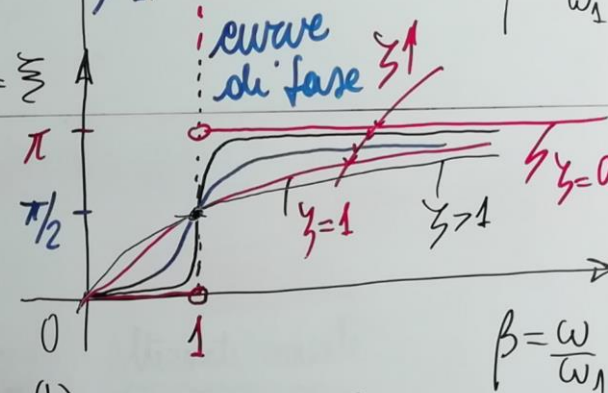 ω₁
curve
di fase
ζ↑
= ξ
π
π/2
ζ=0
ζ=1
ζ>1
0
1
β = ω/ω₁